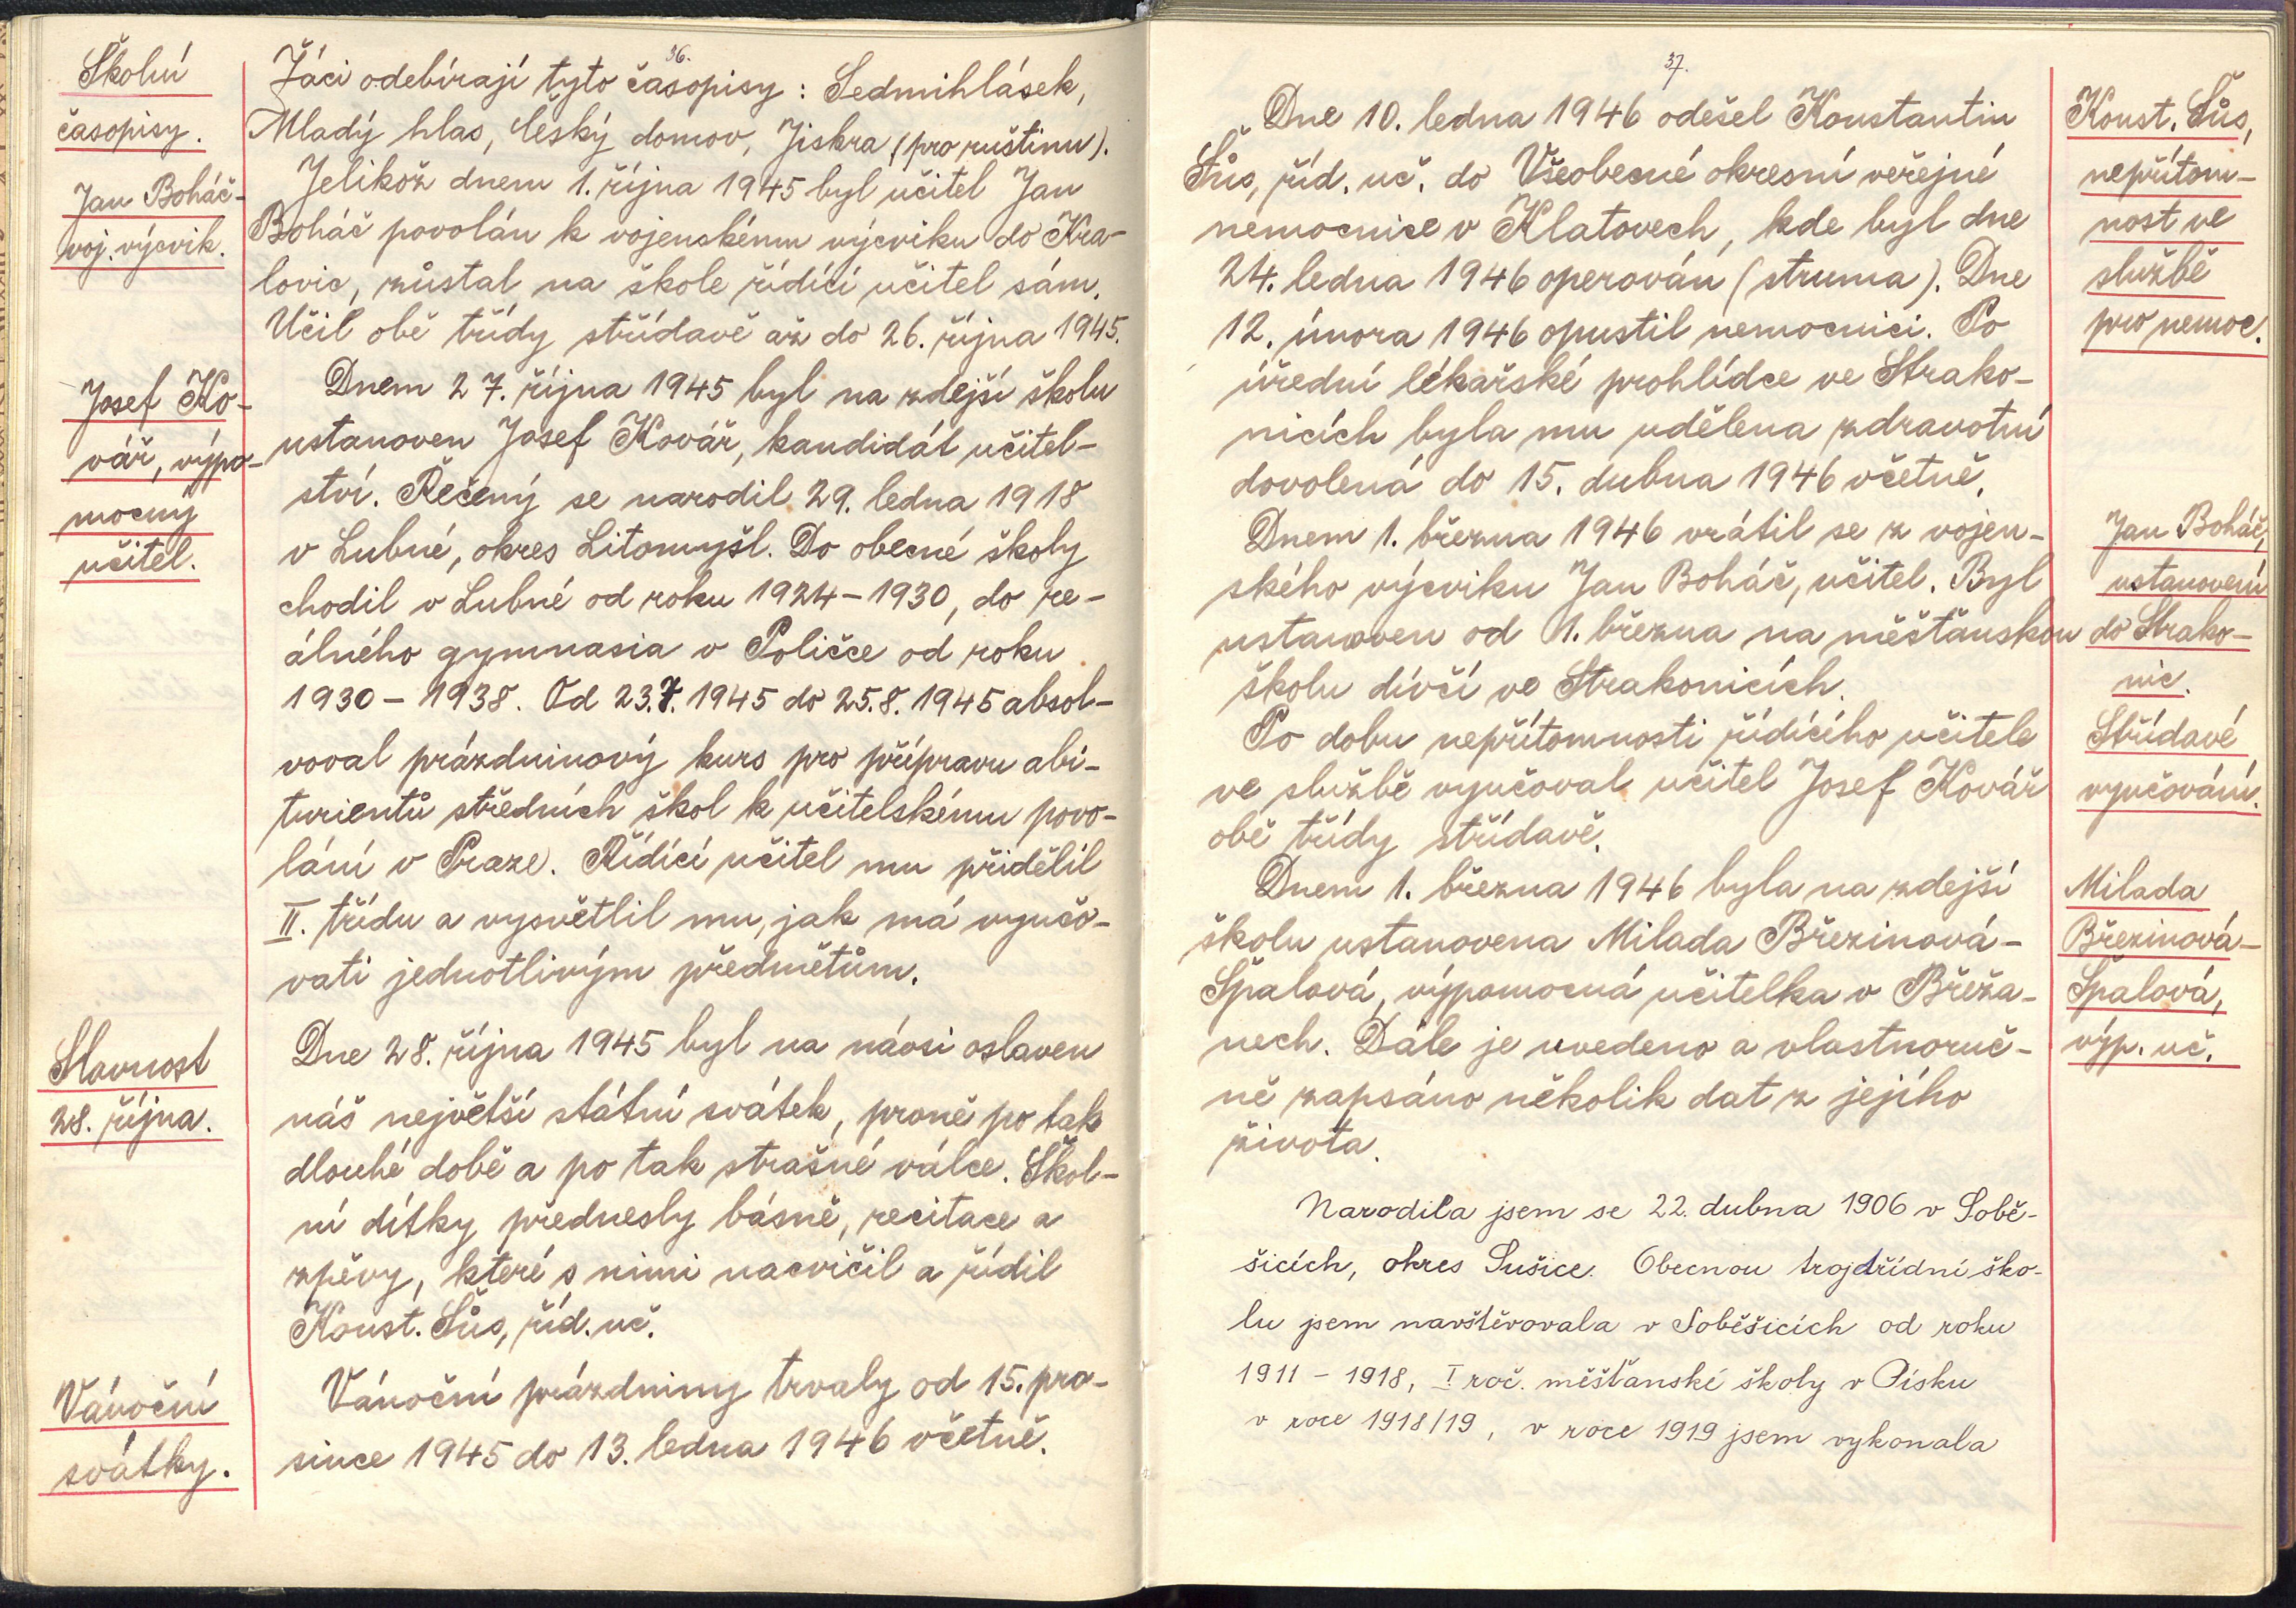 36.
Školní
časopisy.
Žáci odebírají tyto časopisy: Sedmihlásek,
Mladý hlas, Český domov, Jiskra (pro ruštinu).
Jan Boháč-
voj. výcvik.
Jelikož dnem 1. října 1945 byl učitel Jan
Boháč povolán k vojenskému výcviku do Kra-
lovic, zůstal na škole řídící učitel sám.
Učil obě třídy střídavě až do 26. října 1945.
Josef Ko-
vář, výpo-
mocný
učitel.
Dnem 27. října 1945 byl na zdejší školu
ustanoven Josef Kovář, kandidát učitel-
ství. Řečený se narodil 29. ledna 1918
v Lubné, okres Litomyšl. Do obecné školy
chodil v Lubné od roku 1924-1930, do re-
álného gymnasia v Poličce od roku
1930-1938. Od 23.7.1945 do 25.8.1945 absol-
voval prázdninový kurs pro přípravu abi-
turientů středních škol k učitelskému povo-
lání v Praze. Řídící učitel mu přidělil
II. třídu a vysvětlil mu, jak má vyučo-
vati jednotlivým předmětům.
Slavnost
28. října.
Dne 28. října 1945 byl na návsi oslaven
náš největší státní svátek, prvně po tak
dlouhé době a po tak strašné válce. Škol-
ní dítky přednesly básně, recitace a
zpěvy, které s nimi nacvičil a řídil
Konst. Šůs, říd. uč.
Vánoční
svátky.
Vánoční prázdniny trvaly od 15. pro-
since 1945 do 13. ledna 1946 včetně.
37.
Dne 10. ledna 1946 odešel Konstantin
Šůs, říd. uč. do Všeobecné okresní veřejné
nemocnice v Klatovech, kde byl dne
24. ledna 1946 operován (struma). Dne
12. února 1946 opustil nemocnici. Po
úřední lékařské prohlídce ve Strako-
nicích byla mu udělena zdravotní
dovolená do 15. dubna 1946 včetně.
Konst. Šůs,
nepřítom-
nost ve
službě
pro nemoc.
Dnem 1. března 1946 vrátil se z vojen-
ského výcviku Jan Boháč, učitel. Byl
ustanoven od 1. března na měšťanskou
školu dívčí ve Strakonicích.
Jan Boháč,
ustanovení
do Strako-
nic.
Po dobu nepřítomnosti řídícího učitele
ve službě vyučoval učitel Josef Kovář
obě třídy střídavě.
Střídavé
vyučování.
Dnem 1. března 1946 byla na zdejší
školu ustanovena Milada Březinová-
Špalová, výpomocná učitelka v Břeža-
nech. Dále je uvedeno a vlastnoruč-
ně zapsáno několik dat z jejího
života.
Milada
Březinová-
Špalová,
výp. uč.
Narodila jsem se 22. dubna 1906 v Sobě-
šicích, okres Sušice. Obecnou trojtřídní ško-
lu jsem navštěvovala v Soběšicích od roku
1911 - 1918, I roč. měšťanské školy v Písku
v roce 1918/19, v roce 1919 jsem vykonala